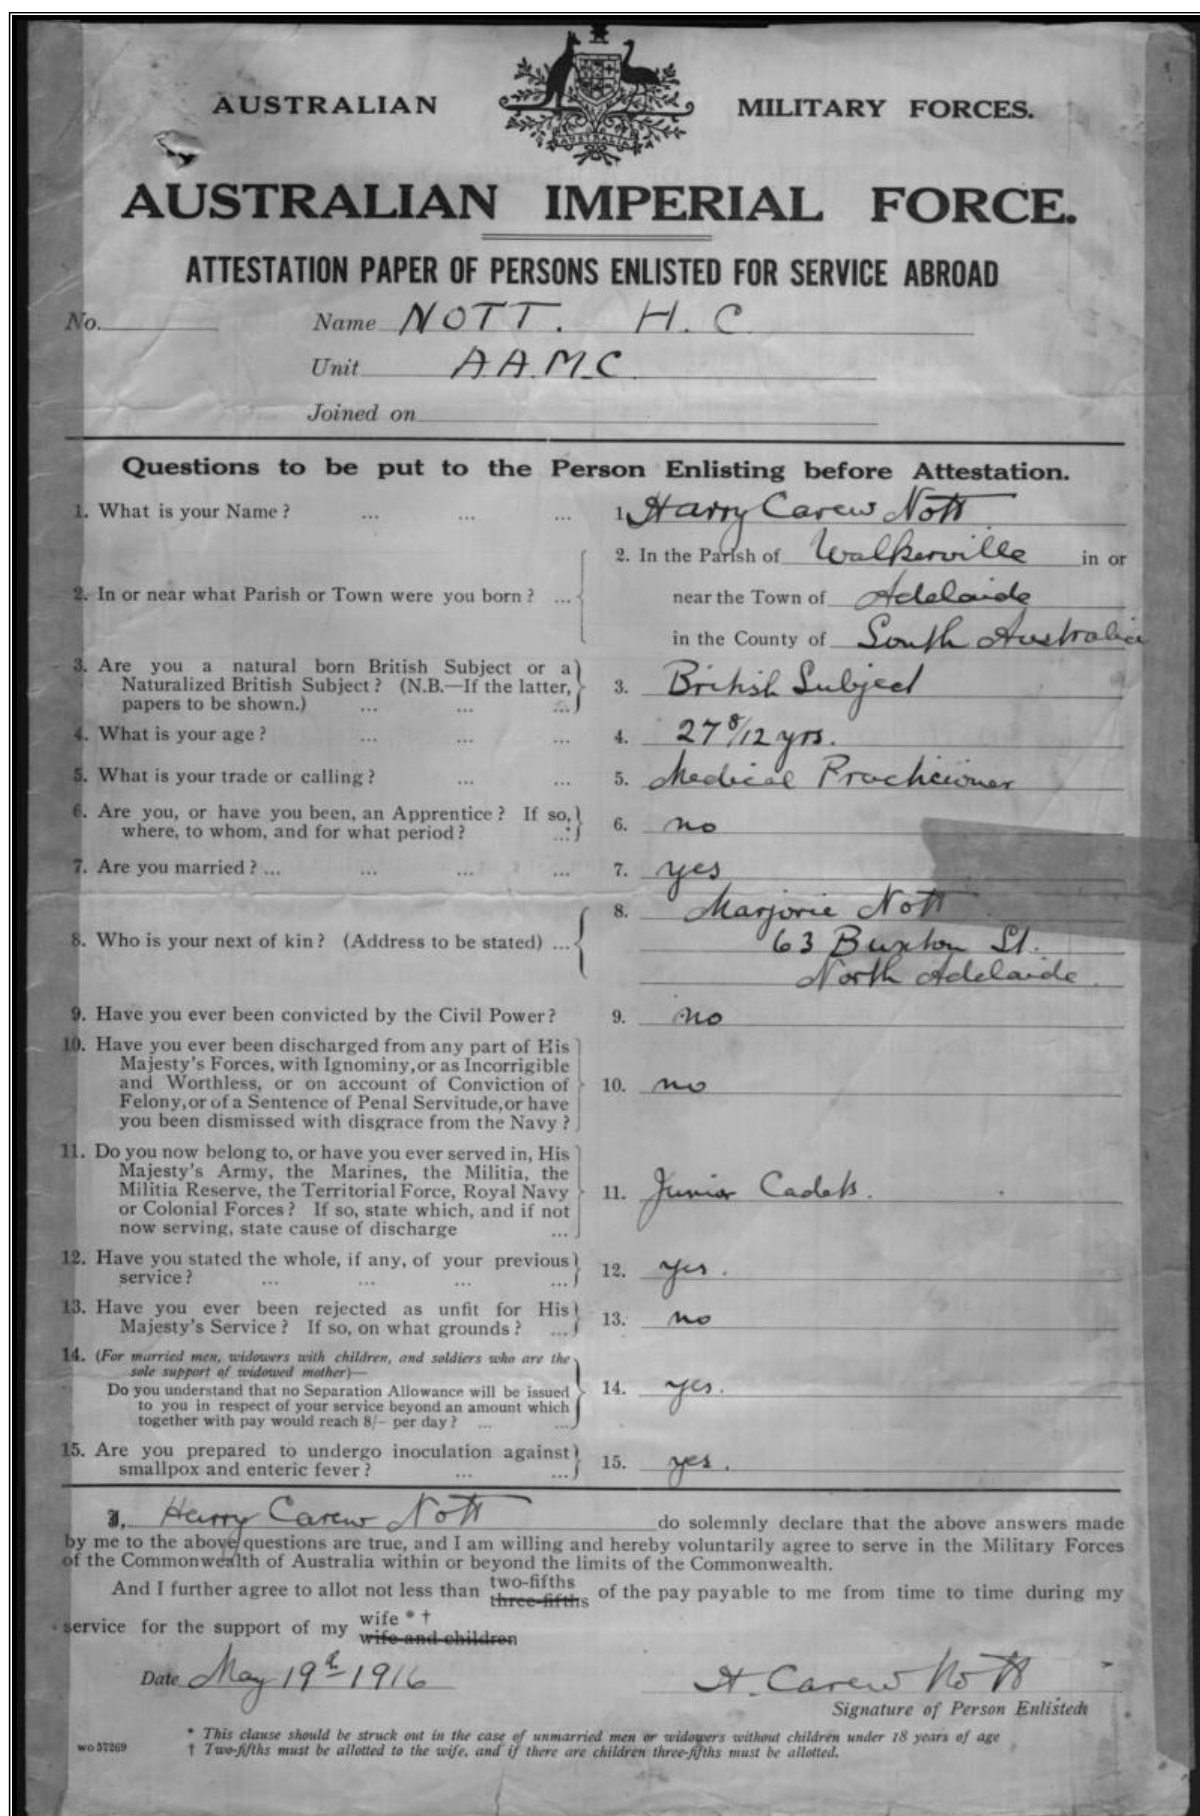 AUSTRALIAN MILITARY FORCES.
AUSTRALIA
AUSTRALIAN IMPERIAL FORCE.
ATTESTATION PAPER OF PERSONS ENLISTED FOR SERVICE ABROAD
No. Name NOTT. H. C
Unit A.A.M.C
Joined on
Questions to be put to the Person Enlisting before Attestation.
1. What is your Name? ... ... ... 1. Harry Carew Nott
2. In or near what Parish or Town were you born? ... 2. In the Parish of Walkerville in or
near the Town of Adelaide
in the County of South Australia
3. Are you a natural born British Subject or a
Naturalized British Subject? (N.B.—If the latter,
papers to be shown.) ... ... ... 3. British Subject
4. What is your age? ... ... ... 4. 27 8/12 yrs.
5. What is your trade or calling? ... ... 5. Medical Practicioner
6. Are you, or have you been, an Apprentice? If so,
where, to whom, and for what period? ... 6. no
7. Are you married? ... ... ... ... 7. yes
8. Who is your next of kin? (Address to be stated) ... 8. Marjorie Nott
63 Buxton St.
North Adelaide.
9. Have you ever been convicted by the Civil Power? 9. no
10. Have you ever been discharged from any part of His
Majesty's Forces, with Ignominy, or as Incorrigible
and Worthless, or on account of Conviction of
Felony, or of a Sentence of Penal Servitude, or have
you been dismissed with disgrace from the Navy? 10. no
11. Do you now belong to, or have you ever served in, His
Majesty's Army, the Marines, the Militia, the
Militia Reserve, the Territorial Force, Royal Navy
or Colonial Forces? If so, state which, and if not
now serving, state cause of discharge ... 11. Junior Cadets.
12. Have you stated the whole, if any, of your previous
service? ... ... ... ... 12. yes.
13. Have you ever been rejected as unfit for His
Majesty's Service? If so, on what grounds? ... 13. no
14. (For married men, widowers with children, and soldiers who are the
sole support of widowed mother)—
Do you understand that no Separation Allowance will be issued
to you in respect of your service beyond an amount which
together with pay would reach 8/- per day? ... ... 14. yes.
15. Are you prepared to undergo inoculation against
smallpox and enteric fever? ... ... 15. yes.
I, Harry Carew Nott do solemnly declare that the above answers made
by me to the above questions are true, and I am willing and hereby voluntarily agree to serve in the Military Forces
of the Commonwealth of Australia within or beyond the limits of the Commonwealth.
And I further agree to allot not less than two-fifths three-fifths of the pay payable to me from time to time during my
service for the support of my wife * † wife and children
Date May 19th 1916 H. Carew Nott
Signature of Person Enlisted.
* This clause should be struck out in the case of unmarried men or widowers without children under 18 years of age
wo 57269 † Two-fifths must be allotted to the wife, and if there are children three-fifths must be allotted.